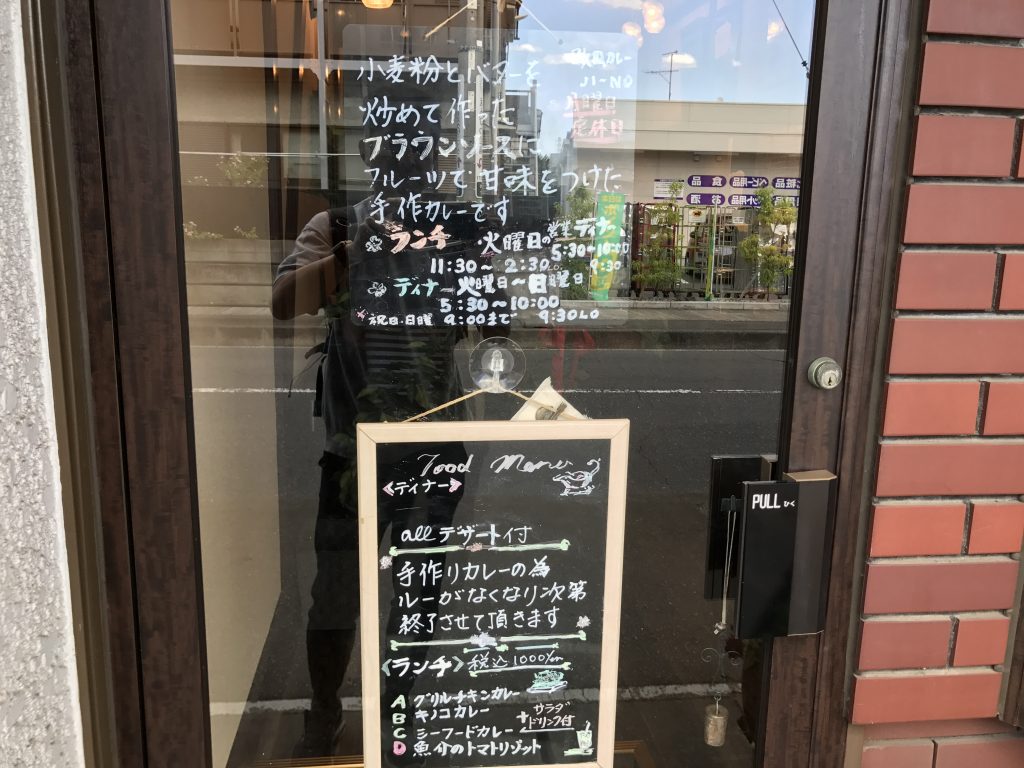 小麦粉とバターを
炒めて作った
ブラウンソースに
フルーツで甘味をつけた
手作カレーです
欧風カレー
JI-NO
月曜日
定休日
ランチ 火曜日の営業ディナー
5:30~10:00
11:30~2:30
9:30
ディナー 火曜日~日曜日
5:30~10:00
祝日・日曜 9:00まで 9:30LO
Food Menu
《ディナー》
allデザート付
手作りカレーの為
ルーがなくなり次第
終了させて頂きます
〈ランチ〉税込1000円
A グリルチキンカレー
B キノコカレー
C シーフードカレー
D 魚介のトマトリゾット
サラダ
+ドリンク付
PULL ひく